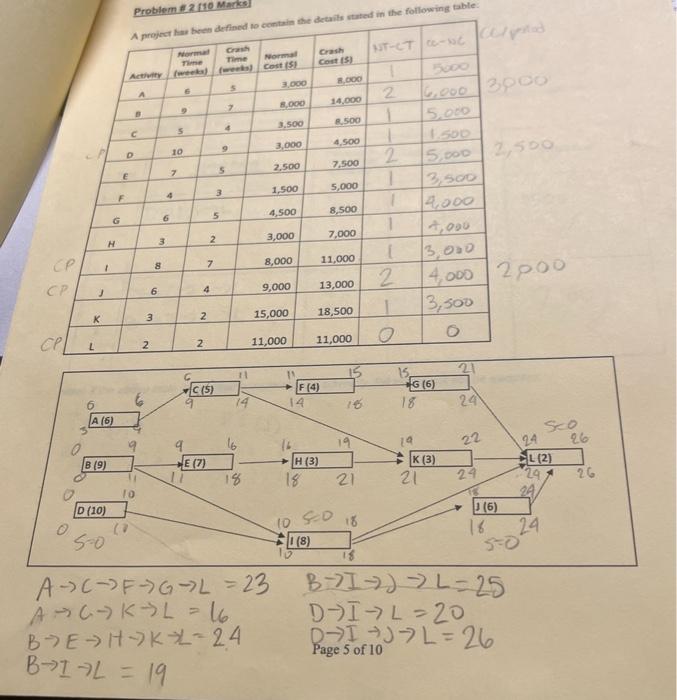 Problem # 2 [10 Marks]
A project has been defined to contain the details stated in the following table:
Activity Normal Time (weeks) Crash Time (weeks) Normal Cost ($) Crash Cost ($) NT-CT CC-NC
A 6 5 3,000 8,000 1 5000
B 9 7 8,000 14,000 2 6,000 3,000
C 5 4 3,500 8,500 1 5,000
CP D 10 9 3,000 4,500 1 1,500
E 7 5 2,500 7,500 2 5,000 2,500
F 4 3 1,500 5,000 1 3,500
G 6 5 4,500 8,500 1 4,000
H 3 2 3,000 7,000 1 4,000
CP I 8 7 8,000 11,000 1 3,000
CP J 6 4 9,000 13,000 2 4,000 2,000
K 3 2 15,000 18,500 1 3,500
CP L 2 2 11,000 11,000 0 0
6 11 11 15 15 21
C (5) F (4) G (6)
9 14 14 18 18 24
6 6
A (6)
3
0 9 9 16 16 19 19 22 24 S=0 26
B (9) E (7) H (3) K (3) L (2)
0 11 11 18 18 21 21 24 24 26
0 10 18 24
D (10) J (6)
0 10 18 24
S=0 S=0
10 S=0 18
I (8)
10 18
A→C→F→G→L = 23 B→I→J→L = 25
A→C→K→L = 16 D→I→L = 20
B→E→H→K→L = 24 D→I→J→L = 26
Page 5 of 10
B→I→L = 19